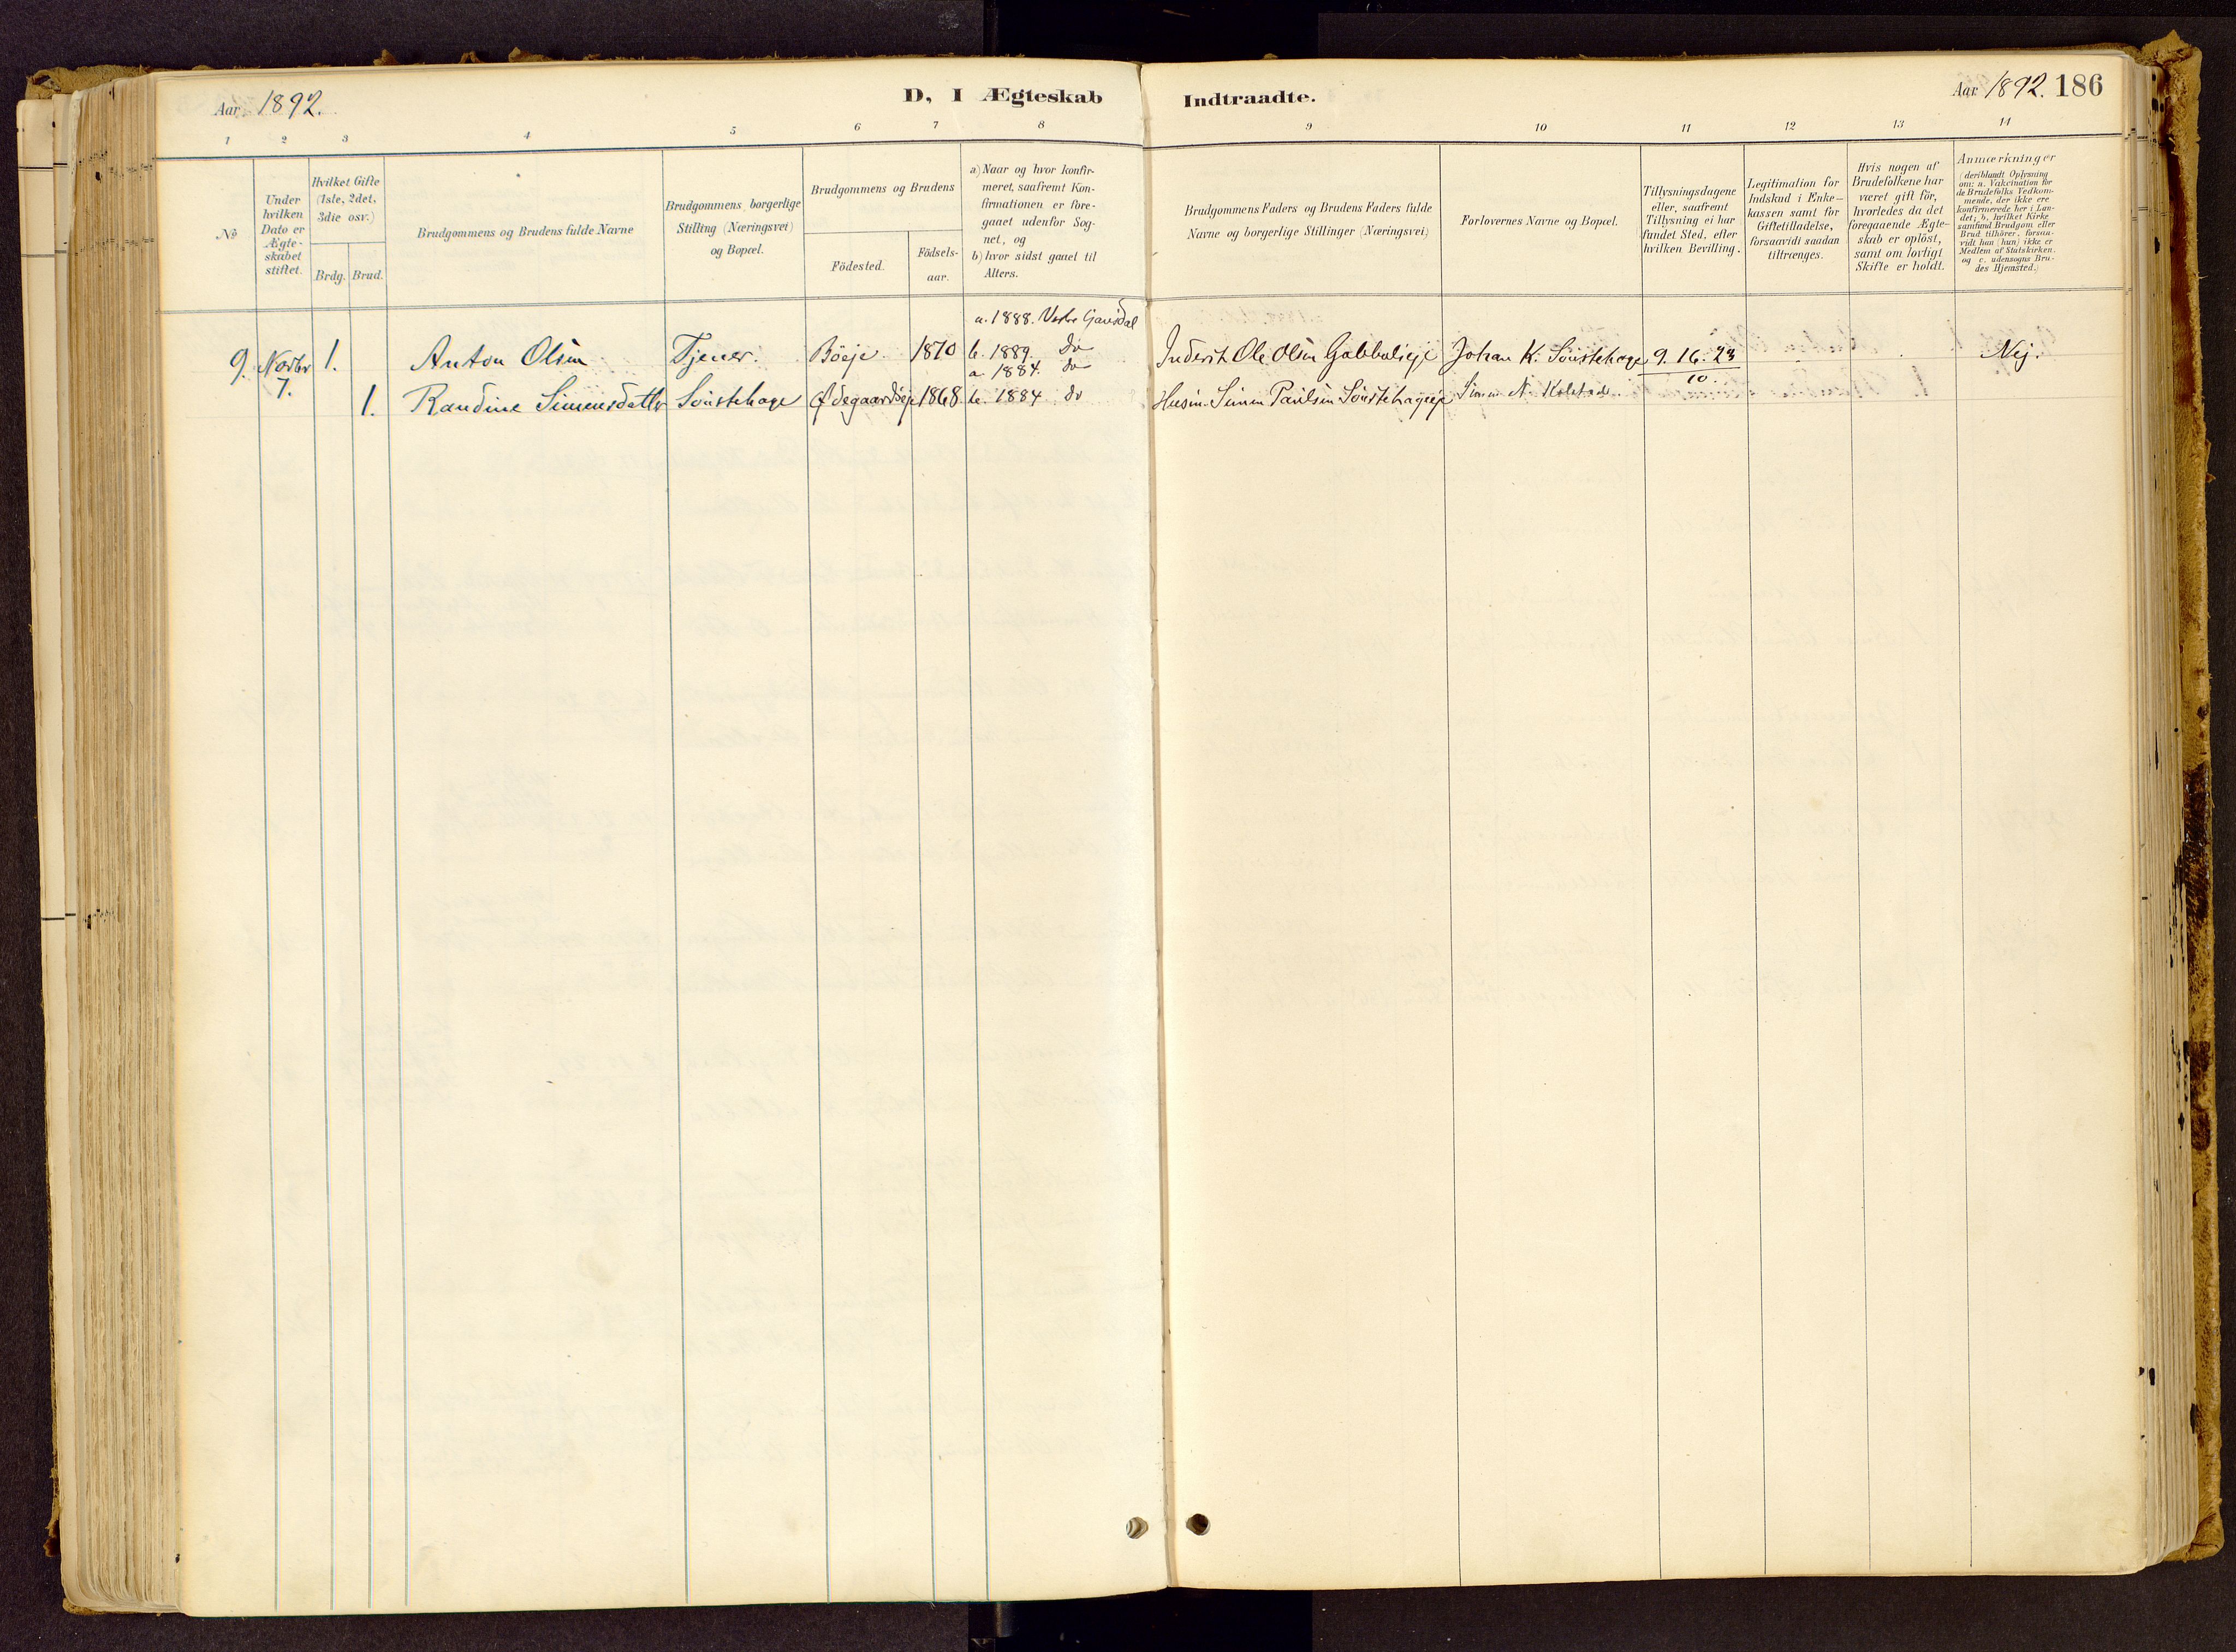 Aar 1892.
D, I Ægteskab
Indtraadte.
Aar 1892. 186
1 2 3 4 5 6 7 8 9 10 11 12 13 14
No
Under
hvilken
Dato er
Ægte-
skabet
stiftet.
Hvilket Gifte
(1ste, 2det,
3die osv.)
Brdg. Brud.
Brudgommens og Brudens fulde Navne
Brudgommens borgerlige
Stilling (Næringsvei)
og Bopæl.
Brudgommens og Brudens
Födested.
Födsels-
aar.
a) Naar og hvor konfir-
meret, saafremt Kon-
firmationen er fore-
gaaet udenfor Sog-
net, og
b) hvor sidst gaaet til
Alters.
Brudgommens Faders og Brudens Faders fulde
Navne og borgerlige Stillinger (Næringsvei)
Forlovernes Navne og Bopæl.
Tillysningsdagene
eller, saafremt
Tillysning ei har
fundet Sted, efter
hvilken Bevilling.
Legitimation for
Indskud i Enke-
kassen samt for
Giftetilladelse,
forsaavidt saadan
tiltrænges.
Hvis nogen af
Brudefolkene har
været gift för,
hvorledes da det
foregaaende Ægte-
skab er oplöst,
samt om lovligt
Skifte er holdt.
Anmærkninger
(deriblandt Oplysning
om: a. Vakcination for
de Brudefolks Vedkom-
mende, der ikke ere
konfirmerede her i Lan-
det; b. hvilket Kirke-
samfund Brudgom eller
Brud tilhörer, forsaa-
vidt han (hun) ikke er
Medlem af Statskirken.
og c. udensogns Bru-
des Hjemsted.)
a. 1888. Vestre Gausdal
9. Novbr 1. Anton Olsen Tjener. Böeje. 1870 b. 1889. do Inderst Ole Olsen Johan K. Sönstehage 9. 16. 23 Nej.
7. a. 1884. do 10.
1. Randine Simensdatter Sönstehage Ødegaardseje 1868 b. 1884 do Husm. Simen Paulsen Sönstehageeje Simen N. Kolstad.